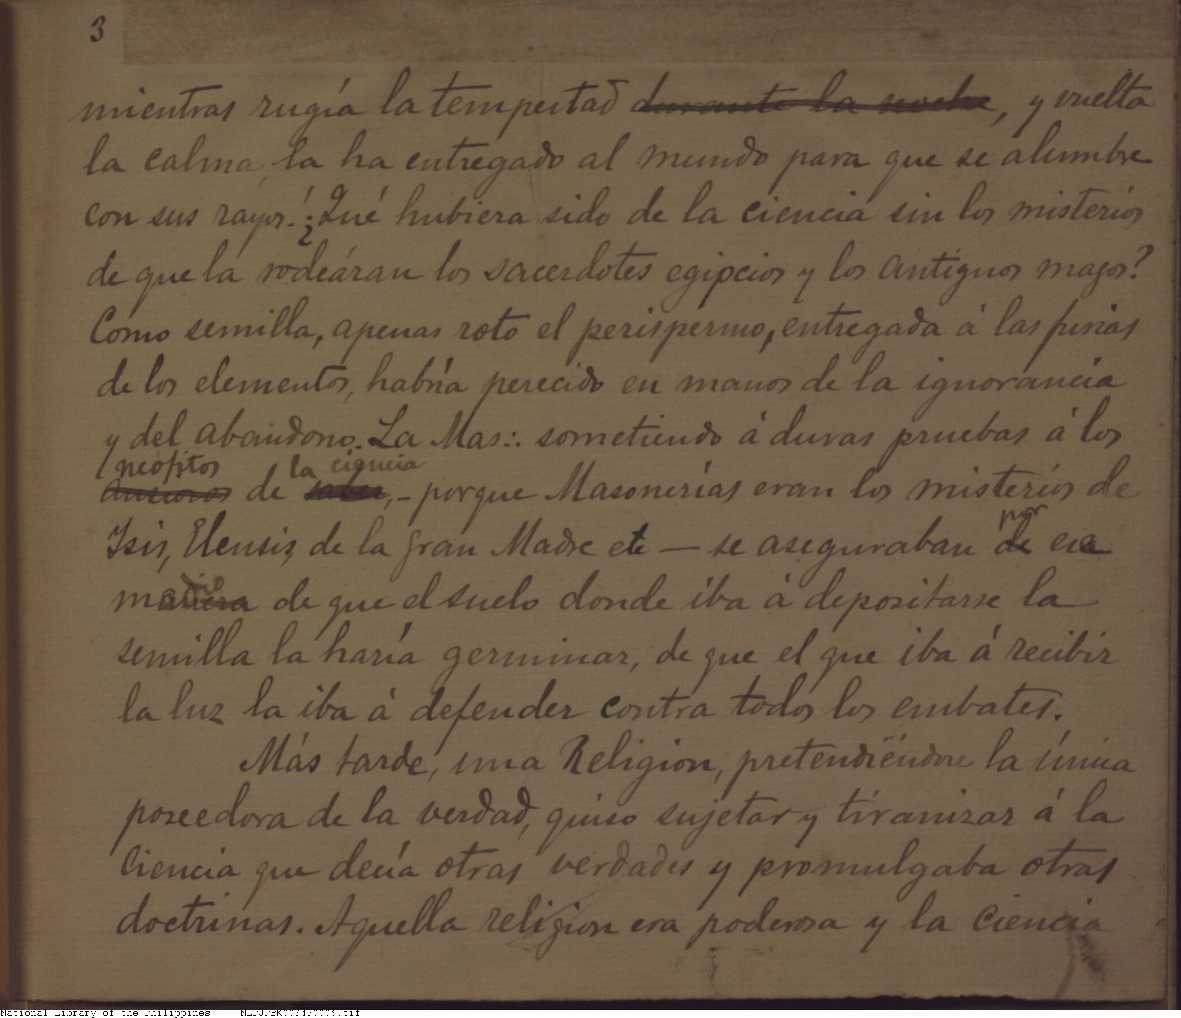 3
mientras rugía la tempestad durante la noche, y vuelta
la calma, la ha entregado al mundo para que se alumbre
con sus rayos! ¿Qué hubiera sido de la ciencia sin los misterios
de que la rodeáran los sacerdotes egipcios y los antiguos magos?
Como semilla, apenas roto el perispermo, entregada á las furias
de los elementos, habría perecido en manos de la ignorancia
y del abandono. La Mas∴ sometiendo á duras pruebas á los
neófitos la ciencia
ansiosos de saber, - porque Masonerías eran los misterios de
por
Isis, Eleusis, de la gran Madre etc — se aseguraban de ese
de que el suelo donde iba á depositarse la
semilla la haría germinar, de que el que iba á recibir
la luz la iba á defender contra todos los embates.
Más tarde, una Religion, pretendiéndose la única
poseedora de la verdad, quiso sujetar y tiranizar á la
ciencia que decía otras verdades y promulgaba otras
doctrinas. Aquella religion era poderosa y la ciencia
National Library of the Philippines